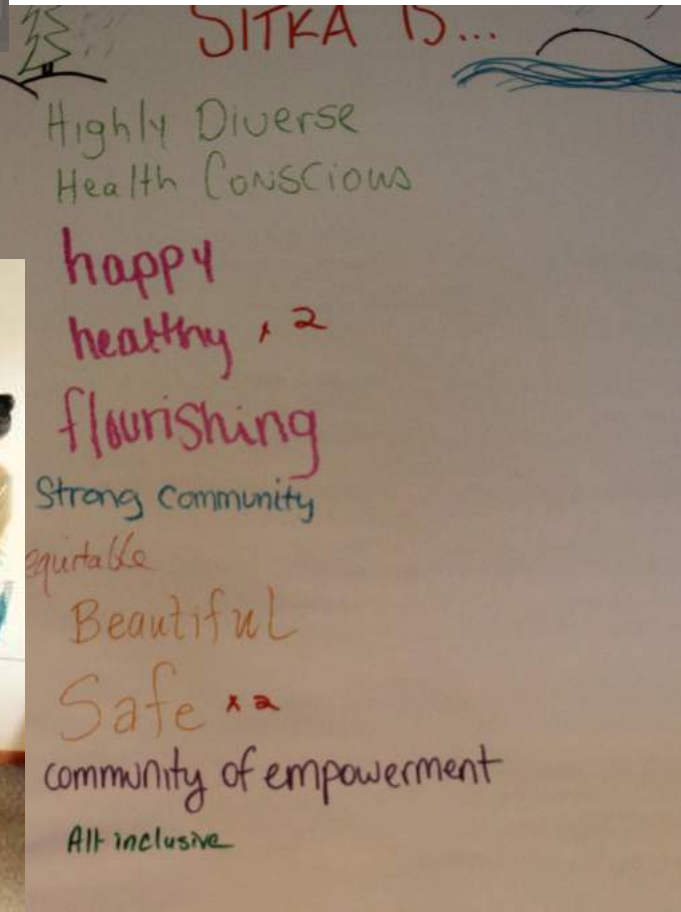 SITKA IS...
Highly Diverse
Health Conscious
happy
healthy x 2
flourishing
Strong Community
equitable
Beautiful
Safe x 2
community of empowerment
All inclusive